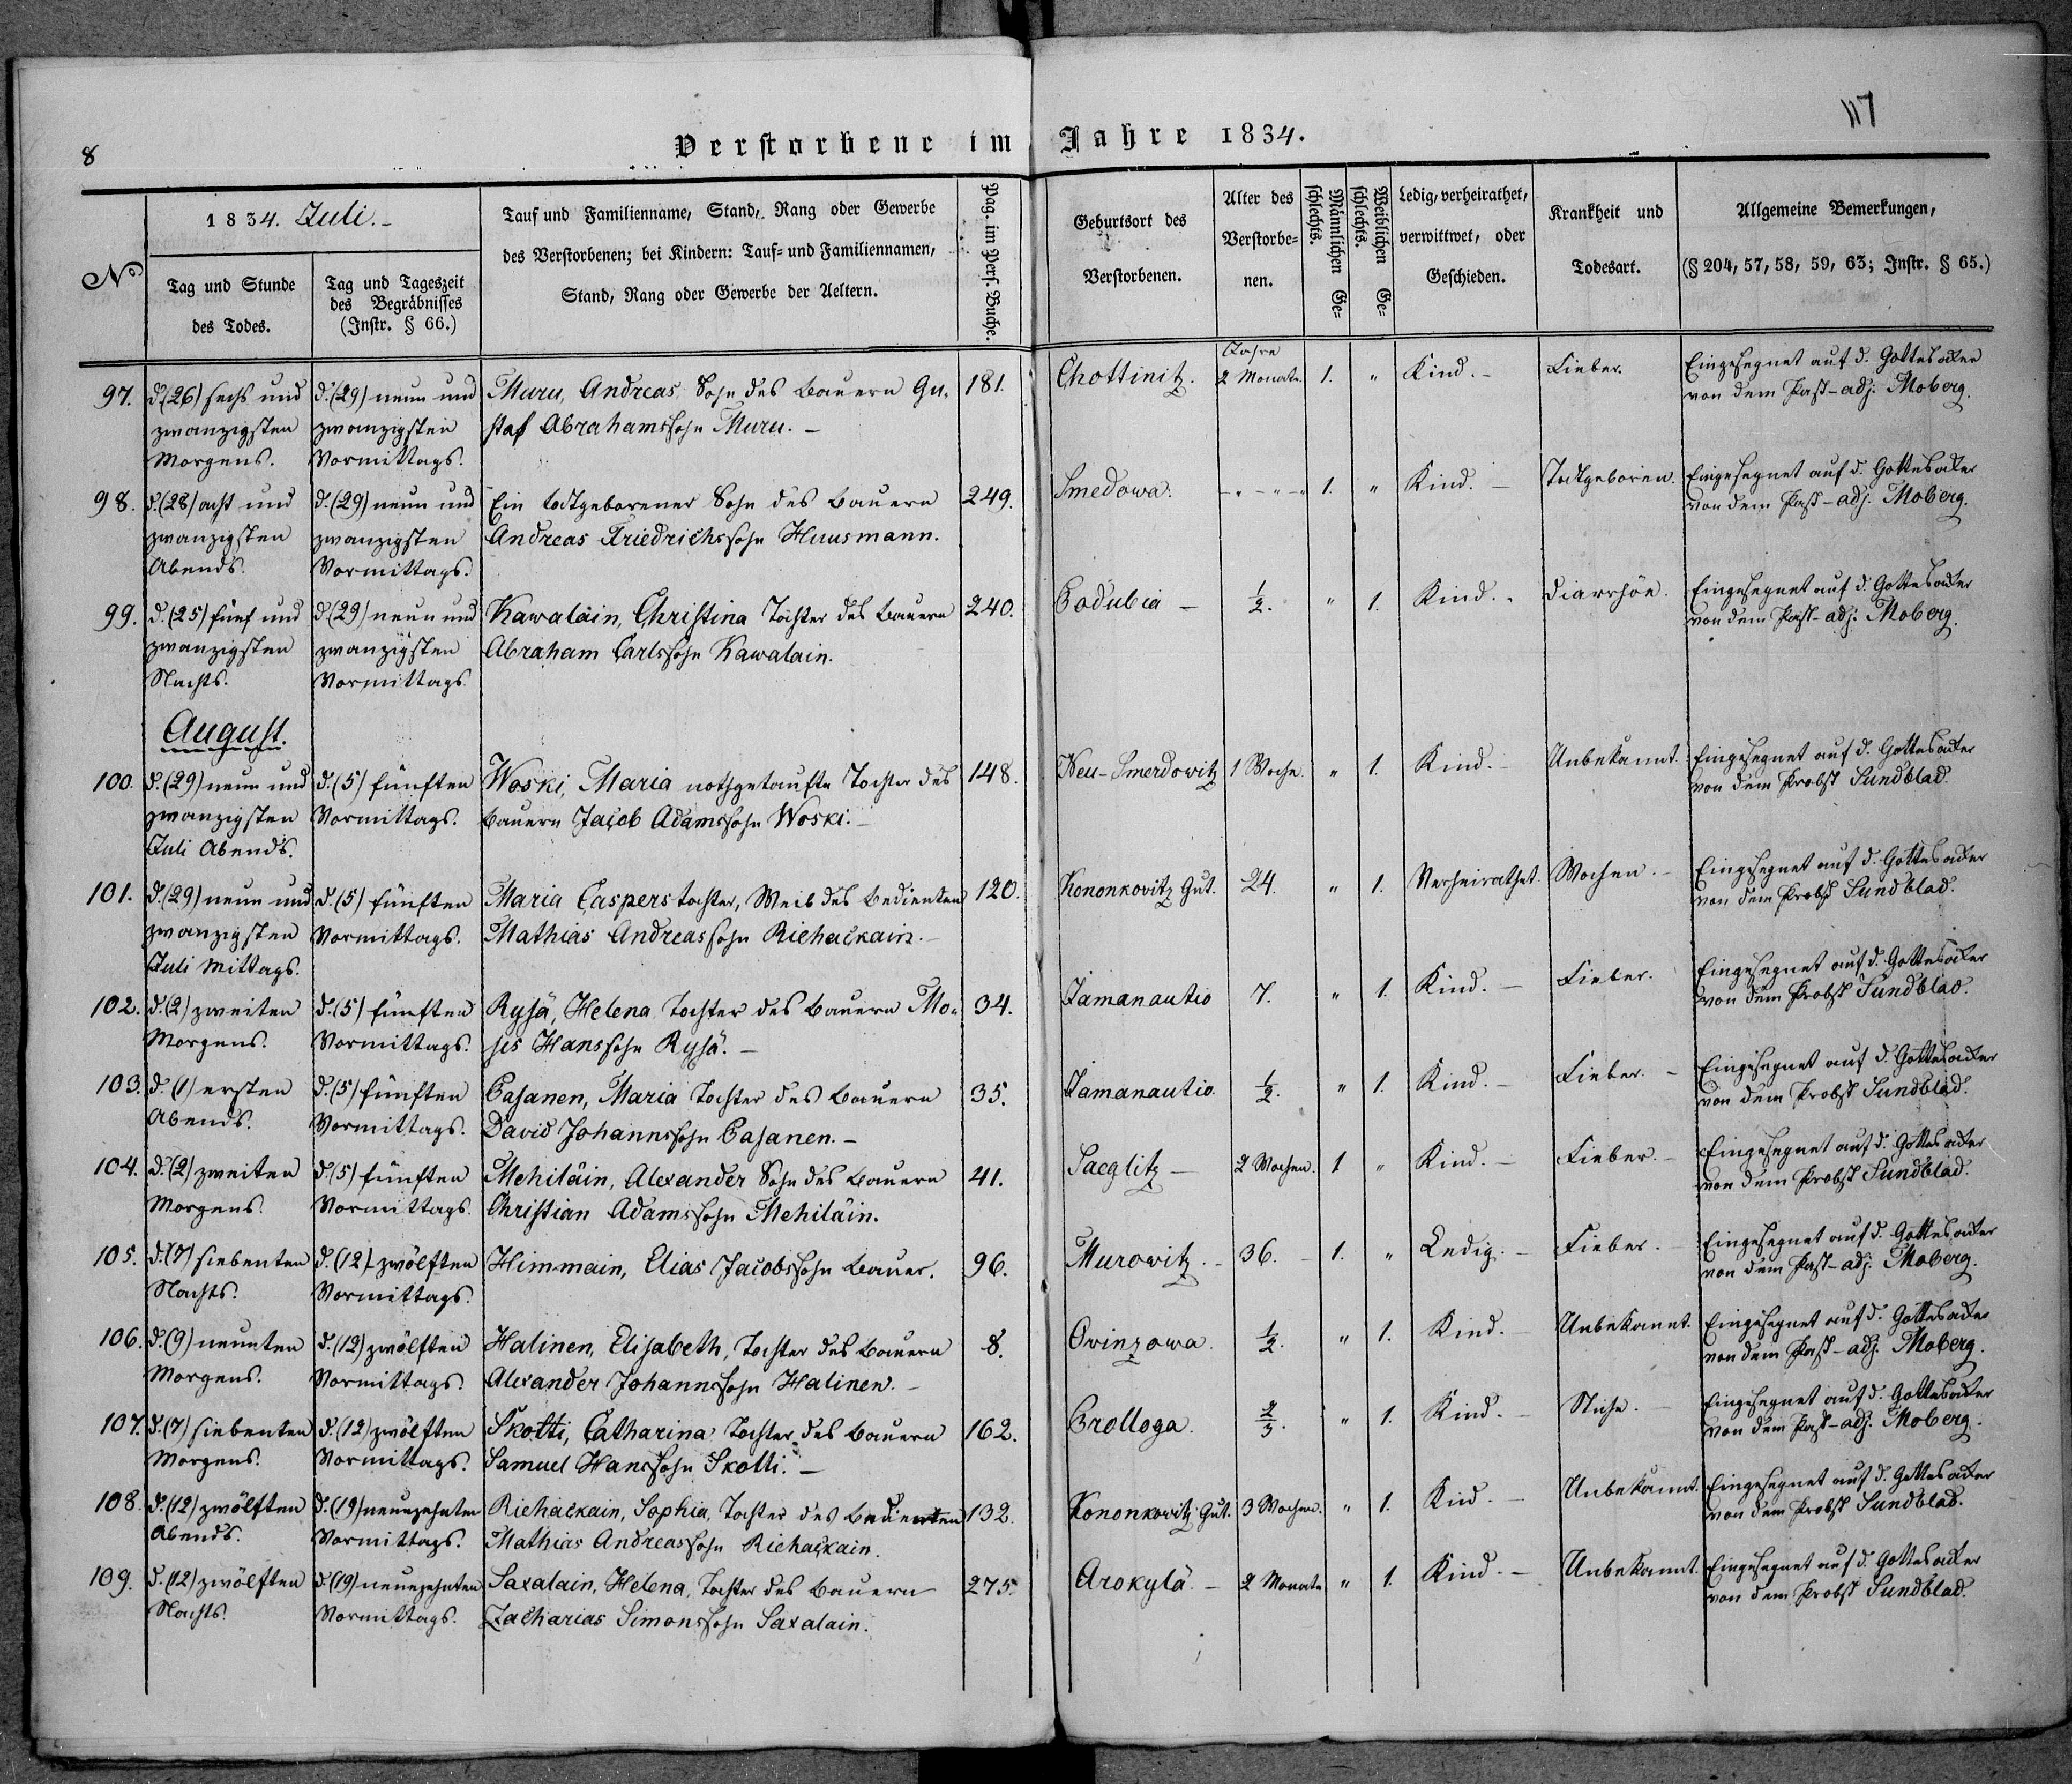 8
Verstorbene im Jahre 1834.
117
No
1834. Juli.-
Tag und Stunde
des Todes.
Tag und Tageszeit
des Begräbnisses
(Instr. § 66.)
Tauf und Familienname, Stand, Rang oder Gewerbe
des Verstorbenen; bei Kindern: Tauf- und Familiennamen,
Stand, Rang oder Gewerbe der Aeltern.
Pag. im Pers. Buche.
Geburtsort des
Verstorbenen.
Alter des
Verstorbe-
nen.
Männlichen Ge-
schlechts.
Weiblichen Ge-
schlechts.
Ledig, verheirathet,
verwittwet, oder
Geschieden.
Krankheit und
Todesart.
Allgemeine Bemerkungen,
(§ 204, 57, 58, 59, 63; Instr. § 65.)
Jahre
97. d. (26) sechs und d. (29) neun und Muru, Andreas, Sohn des Bauern Gu- 181. Chottinitz. 2 Monate. 1. " Kind. - Fieber. Eingesegnet auf d. Gottesacker
zwanzigsten zwanzigsten staf Abrahamssohn Muru. - von dem Past-adj. Moberg.
Morgens. Vormittags.
98. d. (28) acht und d. (29) neun und Ein todtgeborener Sohn des Bauern 249. Smedowa. - " - " - " 1. " Kind. - Todtgeboren. Eingesegnet auf d. Gottesacker
zwanzigsten zwanzigsten Andreas Friedrichssohn Huusmann. von dem Past-adj. Moberg.
Abends. Vormittags.
99. d. (25) fünf und d. (29) neun und Kawalain, Christina Tochter des Bauern 240. Podubia - 1/2. " 1. Kind. - Diarrhöe. Eingesegnet auf d. Gottesacker
zwanzigsten zwanzigsten Abraham Carlssohn Kawalain. von dem Past-adj. Moberg.
Nachts. Vormittags.
August.
100. d. (29) neun und d. (5) fünften Woski, Maria nothgetaufte Tochter des 148. Neu-Smerdowitz 1 Woche. " 1. Kind. - Unbekannt. Eingesegnet auf d. Gottesacker
zwanzigsten Vormittags. Bauern Jacob Adamssohn Woski. - von dem Probst Sundblad.
Juli Abends.
101. d. (29) neun und d. (5) fünften Maria Casperstochter, Weib des Bedienten 120. Kononkovitz Gut. 24. " 1. Verheirathet. Wochen. - Eingesegnet auf d. Gottesacker
zwanzigsten Vormittags. Mathias Andreassohn Riehackain. - von dem Probst Sundblad.
Juli Mittags.
102. d. (2) zweiten d. (5) fünften Rysä, Helena Tochter des Bauern Mo- 34. Jamanautio 7. " 1. Kind. - Fieber. Eingesegnet auf d. Gottesacker
Morgens. Vormittags. ses Hanssohn Rysä. - von dem Probst Sundblad.
103. d. (1) ersten d. (5) fünften Pasanen, Maria Tochter des Bauern 35. Jamanautio. 1/2. " 1. Kind. - Fieber. - Eingesegnet auf d. Gottesacker
Abends. Vormittags. David Johannssohn Pasanen. - von dem Probst Sundblad.
104. d. (2) zweiten d. (5) fünften Mehiläin, Alexander Sohn des Bauern 41. Saeglitz - 2 Wochen. 1 " Kind. - Fieber. - Eingesegnet auf d. Gottesacker
Morgens. Vormittags. Christian Adamssohn Mehiläin. von dem Probst Sundblad.
105. d. (7) siebenten d. (12) zwölften Himmain, Elias Jacobssohn Bauer. 96. Murowitz. - 36. - 1. " Ledig. - Fieber. Eingesegnet auf d. Gottesacker
Nachts. Vormittags. von dem Past-adj. Moberg.
106. d. (9) neunten d. (12) zwölften Halinen, Elisabeth, Tochter des Bauern 8. Ovinzowa. 1/2. " 1. Kind. - Unbekannt. Eingesegnet auf d. Gottesacker
Morgens. Vormittags. Alexander Johannssohn Halinen. - von dem Past-adj. Moberg.
107. d. (7) siebenten d. (12) zwölften Skotti, Catharina Tochter des Bauern 162. Prolloga. 2/3. " 1. Kind. - Stiche. - Eingesegnet auf d. Gottesacker
Morgens. Vormittags. Samuel Hanssohn Skotti. - von dem Past-adj. Moberg.
108. d. (12) zwölften d. (19) neunzehnten Riehackain, Sophia, Tochter des Bedienten 132. Kononkovitz Gut. 3 Wochen. " 1. Kid. - Unbekannt. Eingesegnet auf d. Gottesacker
Abends. Vormittags. Mathias Andreassohn Riehackain. von dem Probst Sundblad.
109. d. (12) zwölften d. (19) neunzehnten Saxalain, Helena, Tochter des Bauern 275. Arokylä. - 2 Monate " 1. Kind. - Unbekannt. Eingesegnet auf d. Gottesacker
Nachts. Vormittags. Zacharias Simonssohn Saxalain. von dem Probst Sundblad.